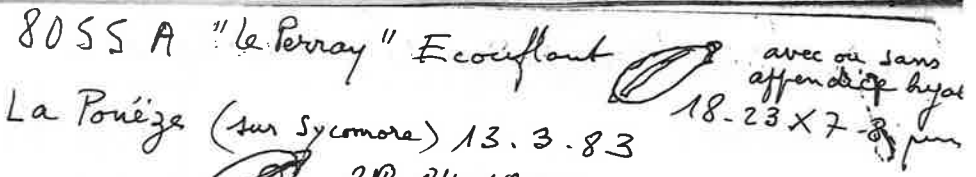 8055 A "Le Perray" Ecouflant
avec ou sans
appendice hyal
18-23 X 7-8 µm
La Pouëze (sur Sycomore) 13.3.83